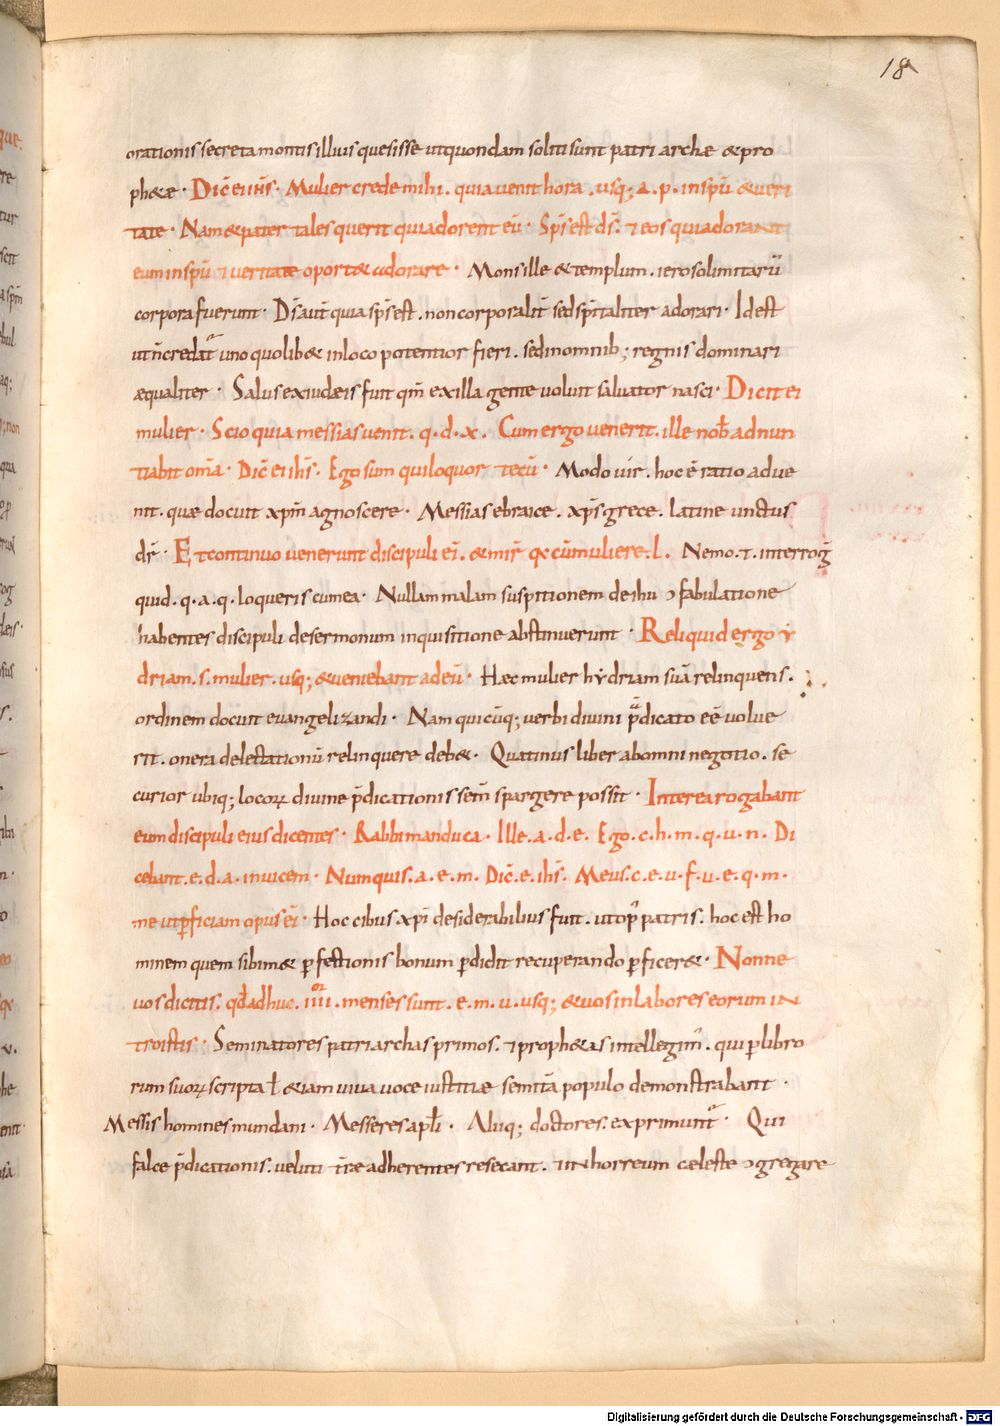 18
orationis secreta montis illius quesisse ut quondam soliti sunt patriarchæ & pro
ph&æ · Dic̄ ei ih̄s · Mulier crede mihi . quia venit hora . usq; a . p . in sp̄u & veri
tate · Nam & pater tales querit qui adorent eū · Sp̄s est ds̄ . 7 eos qui adorant
eum in sp̄u 7 veritate oport& adorare · Mons ille & templum . ierosolimitarū
corpora fuerunt · Ds̄ aut̄ quia sp̄s est . non corporalit̄ sed sp̄italiter adorari · Idest
ut n̄ credat̄ uno quolib& in loco potentior fieri . sed in omnib; regnis dominari
æqualiter · Salus ex iudæis fuit qm̄ ex illa gente voluit salvator nasci · Dicit ei
mulier · Scio quia messias venit . q . d . x . Cum ergo venerit . ille nob̄ adnun
tiabit om̄a · Dic̄ ei ih̄s . Ego sum qui loquor tecū · Modo vir . hoc ē ratio adve
nit . quæ docuit xp̄m agnoscere · Messias ebraice . xp̄s grece . latine unctus
dr̄ · Et continuo venerunt discipuli ei̅ . & mir̄ qx cū muliere . l . Nemo . t . interrog̅
quid . q . a . q . loqueris cum ea · Nullam malam suspitionem de ihu ɔfabulatione
habentes discipuli de sermonum inquisitione abstinuerunt · Reliquid ergo ẏ
driam . s . mulier . usq; & veniebant ad eū · Hæc mulier hẏdriam suā relinquens .
ordinem docuit evangelizandi · Nam quicūq; verbi divini p̄dicator eē volue
rit . onera delectationū relinquere deb& · Quatinus liber ab omni negotio . se
curior ubiq; locoꝝ divine p̄dicationis sem̄ spargere possit · Interea rogabant
eum discipuli eius dicentes · Rabbi manduca · Ille . a . d . e . Ego . c . h . m . q . u . n . Di
cebant . e . d . a . invicem · Numquis . a . e . m . Dic̄ . e . ih̄s . Meus . c . e . u . f . u . e . q . m .
me ut ꝑficiam opus ei̅ · Hoc cibus xp̄i desiderabilius fuit . ut op̄ patris . hoc est ho
minem quem sibim& ꝑfectionis bonum ꝑdidit recuperando ꝑficer& · Nonne
vos dicitis . qd̄ adhuc . iiii . menses sunt . e . m . u . usq; & vos in labores eorum in
troistis · Seminatores patriarchas primos . 7 proph&as intellegim̄ . qui ꝑ libro
rum suoꝝ scripta ł &iam viva voce iustitiæ semitā populo demonstrabant ·
Messis homines mundani · Messeres apłi · Aliiq; doctores . exprimunt̄ · Qui
falce p̄dicationis . veluti tr̄e adherentes resecant . 7 in horreum cæleste ɔgregare
Digitalisierung gefördert durch die Deutsche Forschungsgemeinschaft - DFG